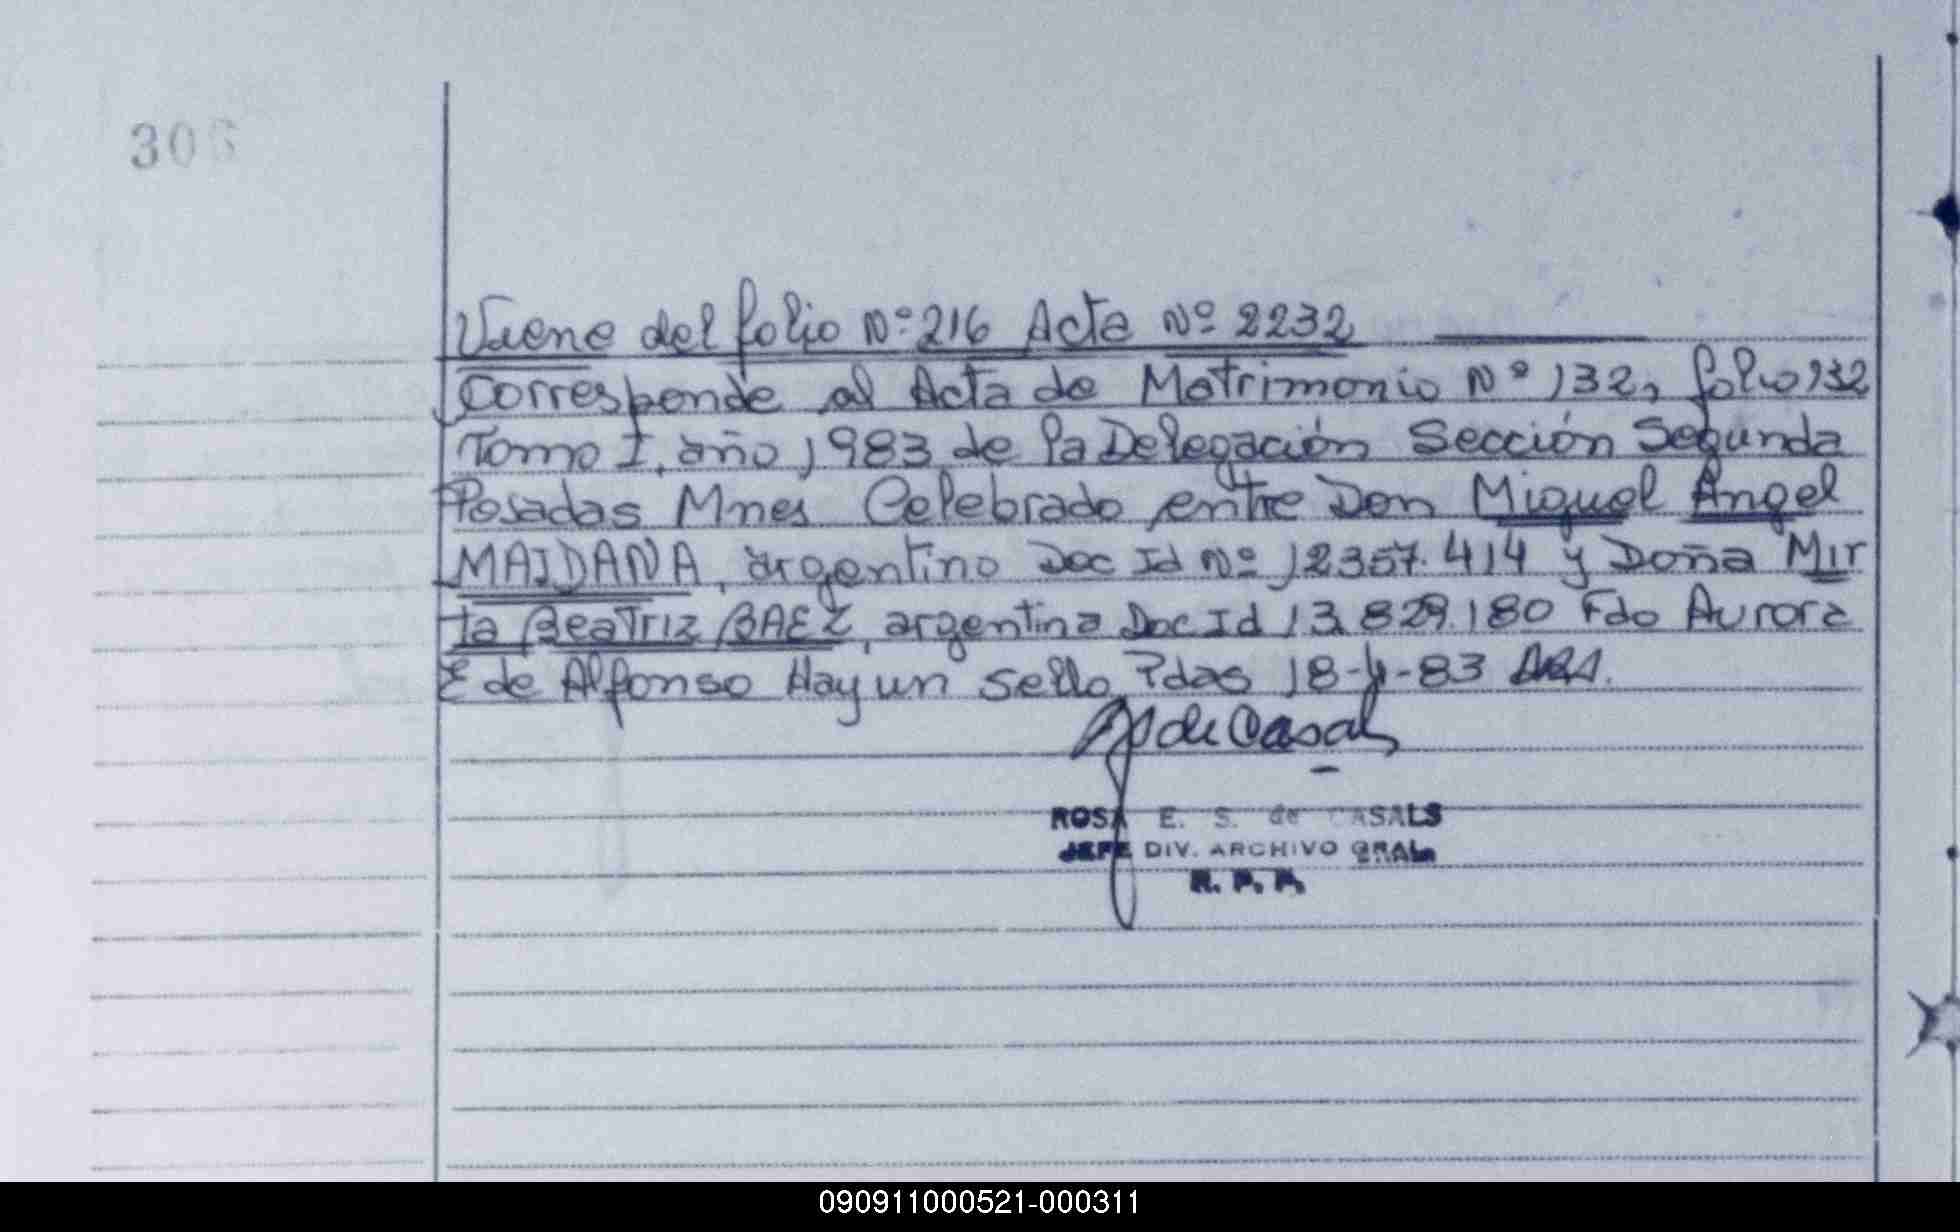 306
Viene del folio Nº 216 Acta Nº 2232
Corresponde al Acta de Matrimonio Nº 132, folio 132
Tomo I, año 1983 de la Delegación Sección Segunda
Posadas Mnes Celebrado entre Don Miguel Angel
MAIDANA, argentino Doc Id Nº 12357.414 y Doña Mir
ta Beatriz BAEZ, argentina Doc Id 13.829.180 Fdo Aurora
E de Alfonso Hay un sello Pdas 18-4-83
de Casals
ROSA E. S. de CASALS
JEFE DIV. ARCHIVO GRAL.
R. P. P.
090911000521-000311